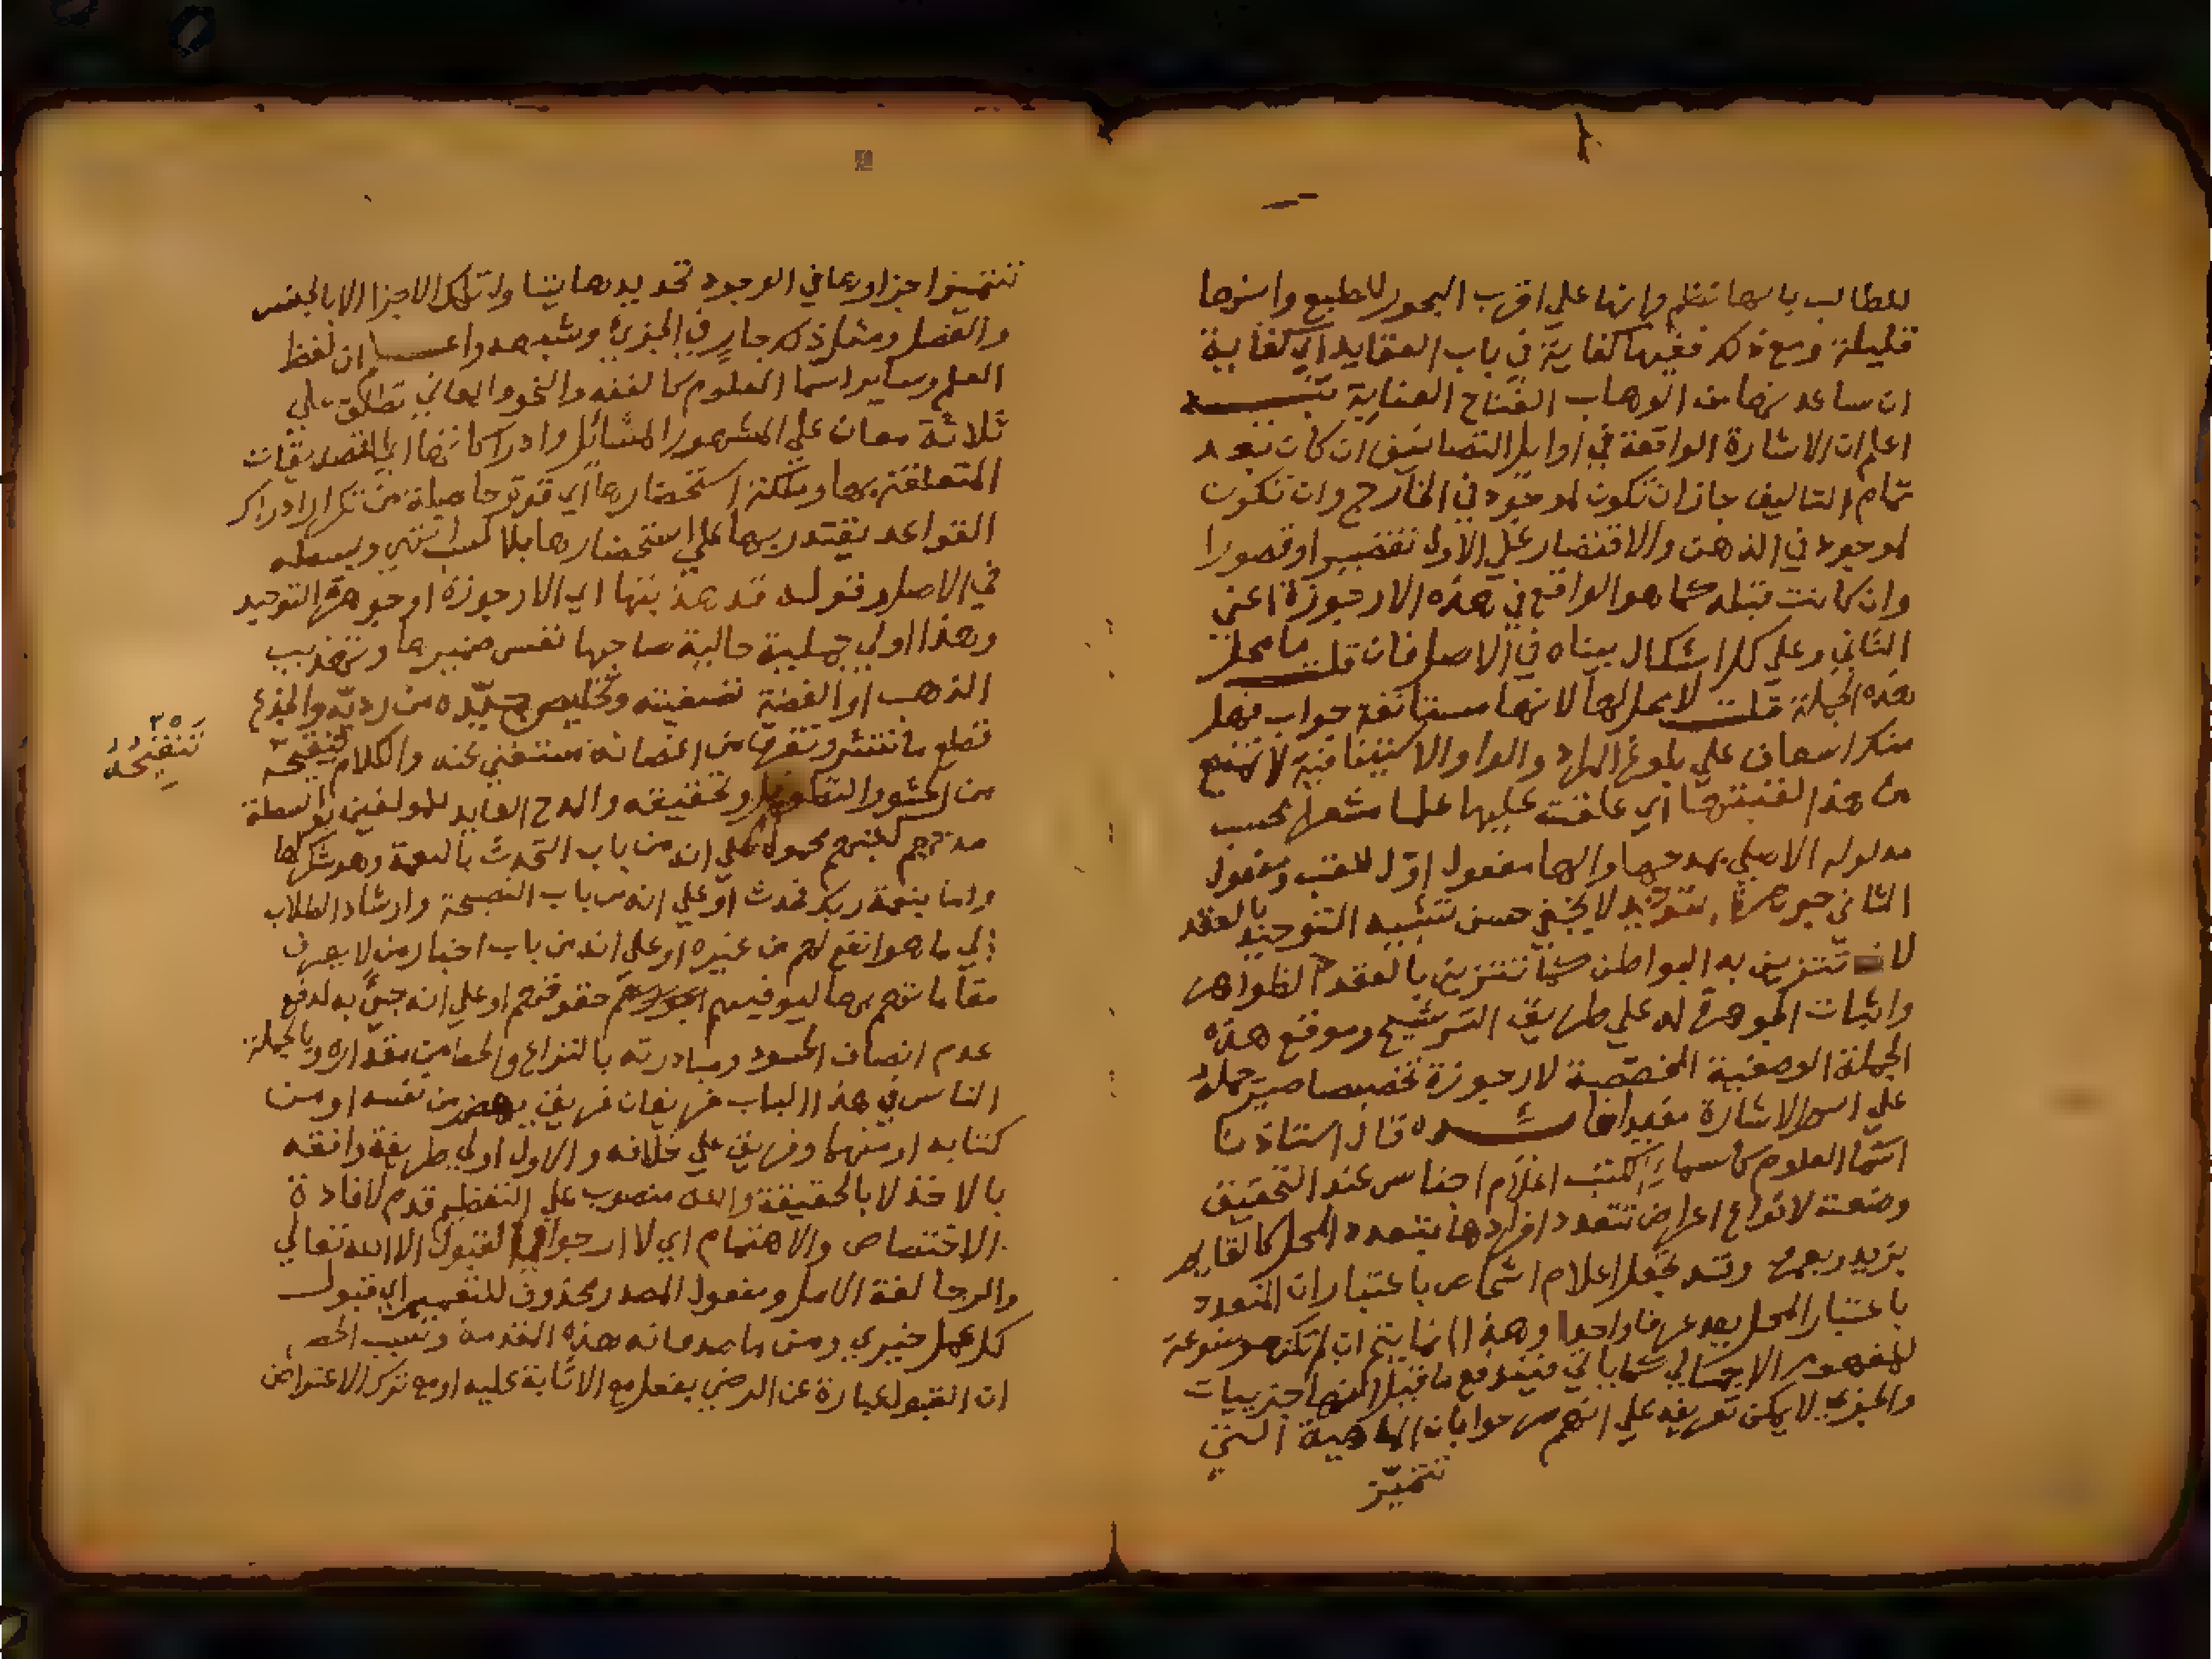 للطالب بانها نظم وانها على اقرب البحور للطبع وانها
قليلة ومع ذلك ففيها كفاية في باب العقايد اي كفاية
ان ساعدتها من الوهاب الفتاح العناية تنبيه
اعلم ان الاشارة الواقعة في اوايل التصانيف ان كانت بعد
تمام التاليف جاز ان تكون لموجود في الخارج وان تكون
لموجود في الذهن والاقتصار على الاول تقصير او قصور
وان كانت قبله كما هو الواقع في هذه الارجوزة اعني
الثاني وعلى كل اشكال بيناه في الاصل فان قلت ما محل
هذه الجملة قلت لا محل لها لانها مستانفة جواب فهل
منك اسعاف على بلوغ المراد والواو الاستينافية لا تمنع
من هذا لقبتها اي علقت عليها علما مشعرا بحسب
مدلوله الاصلي بمدحها والها مفعول اول للقب ومفعول
الثاني جوهرة التوحيد لا يخفى حسن تشبيه التوحيد بالعقد
لانه تتزين به البواطن كما تتزين بالعقد الظواهر
واثبات الجوهرة له على طريق الترشيح وموقع هذه
الجملة الوصفية المخصصة لارجوزة تخصيصا صير حمله
على اسم الاشارة مفيدا فائدة قال استاذنا
اسما العلوم كاسماء الكتب اعلام اجناس عند التحقيق
وضعت لانواع اعراض تتعدد افرادها بتعدد المحل كالقايم
بزيد وبعمرو وقد تجعل اعلام اشخاص باعتبار ان المتعدد
باعتبار المحل يعد عرفا واحدا وهذا انما يتم ان لم تكن موضوعة
للمفهوم الاجمالي كما ياتي فيندفع ما قبل انها جزييات
والجزي لا يمكن تعريفه على انهم صرحوا بان الماهية التي
تتميز
تتميز اجزاوها في الوجود تحديدها بتلك الاجزا الا بالجنس
والفصل ومثل ذلك جار في الجزي وشبهه واعلم ان لفظ
العلم وساير اسما العلوم كالفقه والنحو والمعاني تطلق على
ثلاثة معان على المشهور المسائل وادراكاتها اي التصديقات
المتعلقة بها وملكة استحضارها اي قوة حاصلة من تكرار ادراك
القواعد يقتدر بها على استحضارها بلا كسب انتهى وبسطه
في الاصل وقوله قد هذبتها اي الارجوزة او جوهرة التوحيد
وهذا اولى جملية حالية صاحبها نفس ضميرها وتهذيب
الذهب او الفضة تصفيته وتخليص جيده من رديه والجذع
قطع ما تنشر وتفرق من اغصانه مستغنى عنه والكلام تنقيحه
تنقيحه
من الحشو والتطويل وتحقيقه والمدح العايد للمولفين بواسطة
مدحهم لكتبهم محمول على انه من باب التحدث بالنعمة وهو شكرها
واما بنعمة ربك فحدث او على انه من باب النصيحة وارشاد الطلاب
الى ما هو انفع لهم من غيره او على انه من باب اخبار من لا يعرف
مقاماتهم بها ليوفيهم حقوقهم او على انه جيء به لدفع
عدم انصاف الحسود ومبادرته بالنزاع والحط من مقداره وبالجملة
الناس في هذا الباب فريقان فريق يهضم من نفسه او من
كتابه او منهما وفريق على خلافه والاول اولى طريقة وافقه
بالاخذ لا بالحقيقة والله منصوب على التعظيم قدم لافادة
الاختصاص والاهتمام اي لا ارجو في القبول الا الله تعالى
والرجا لغة الامل ومفعول المصدر محذوف للتعميم اي قبول
كل عمل خيري ومن ما صدقاته هذه المقدمة
ان القبول عبارة عن الرضى بفعل مع الاثابة عليه او مع ترك الاعتراض